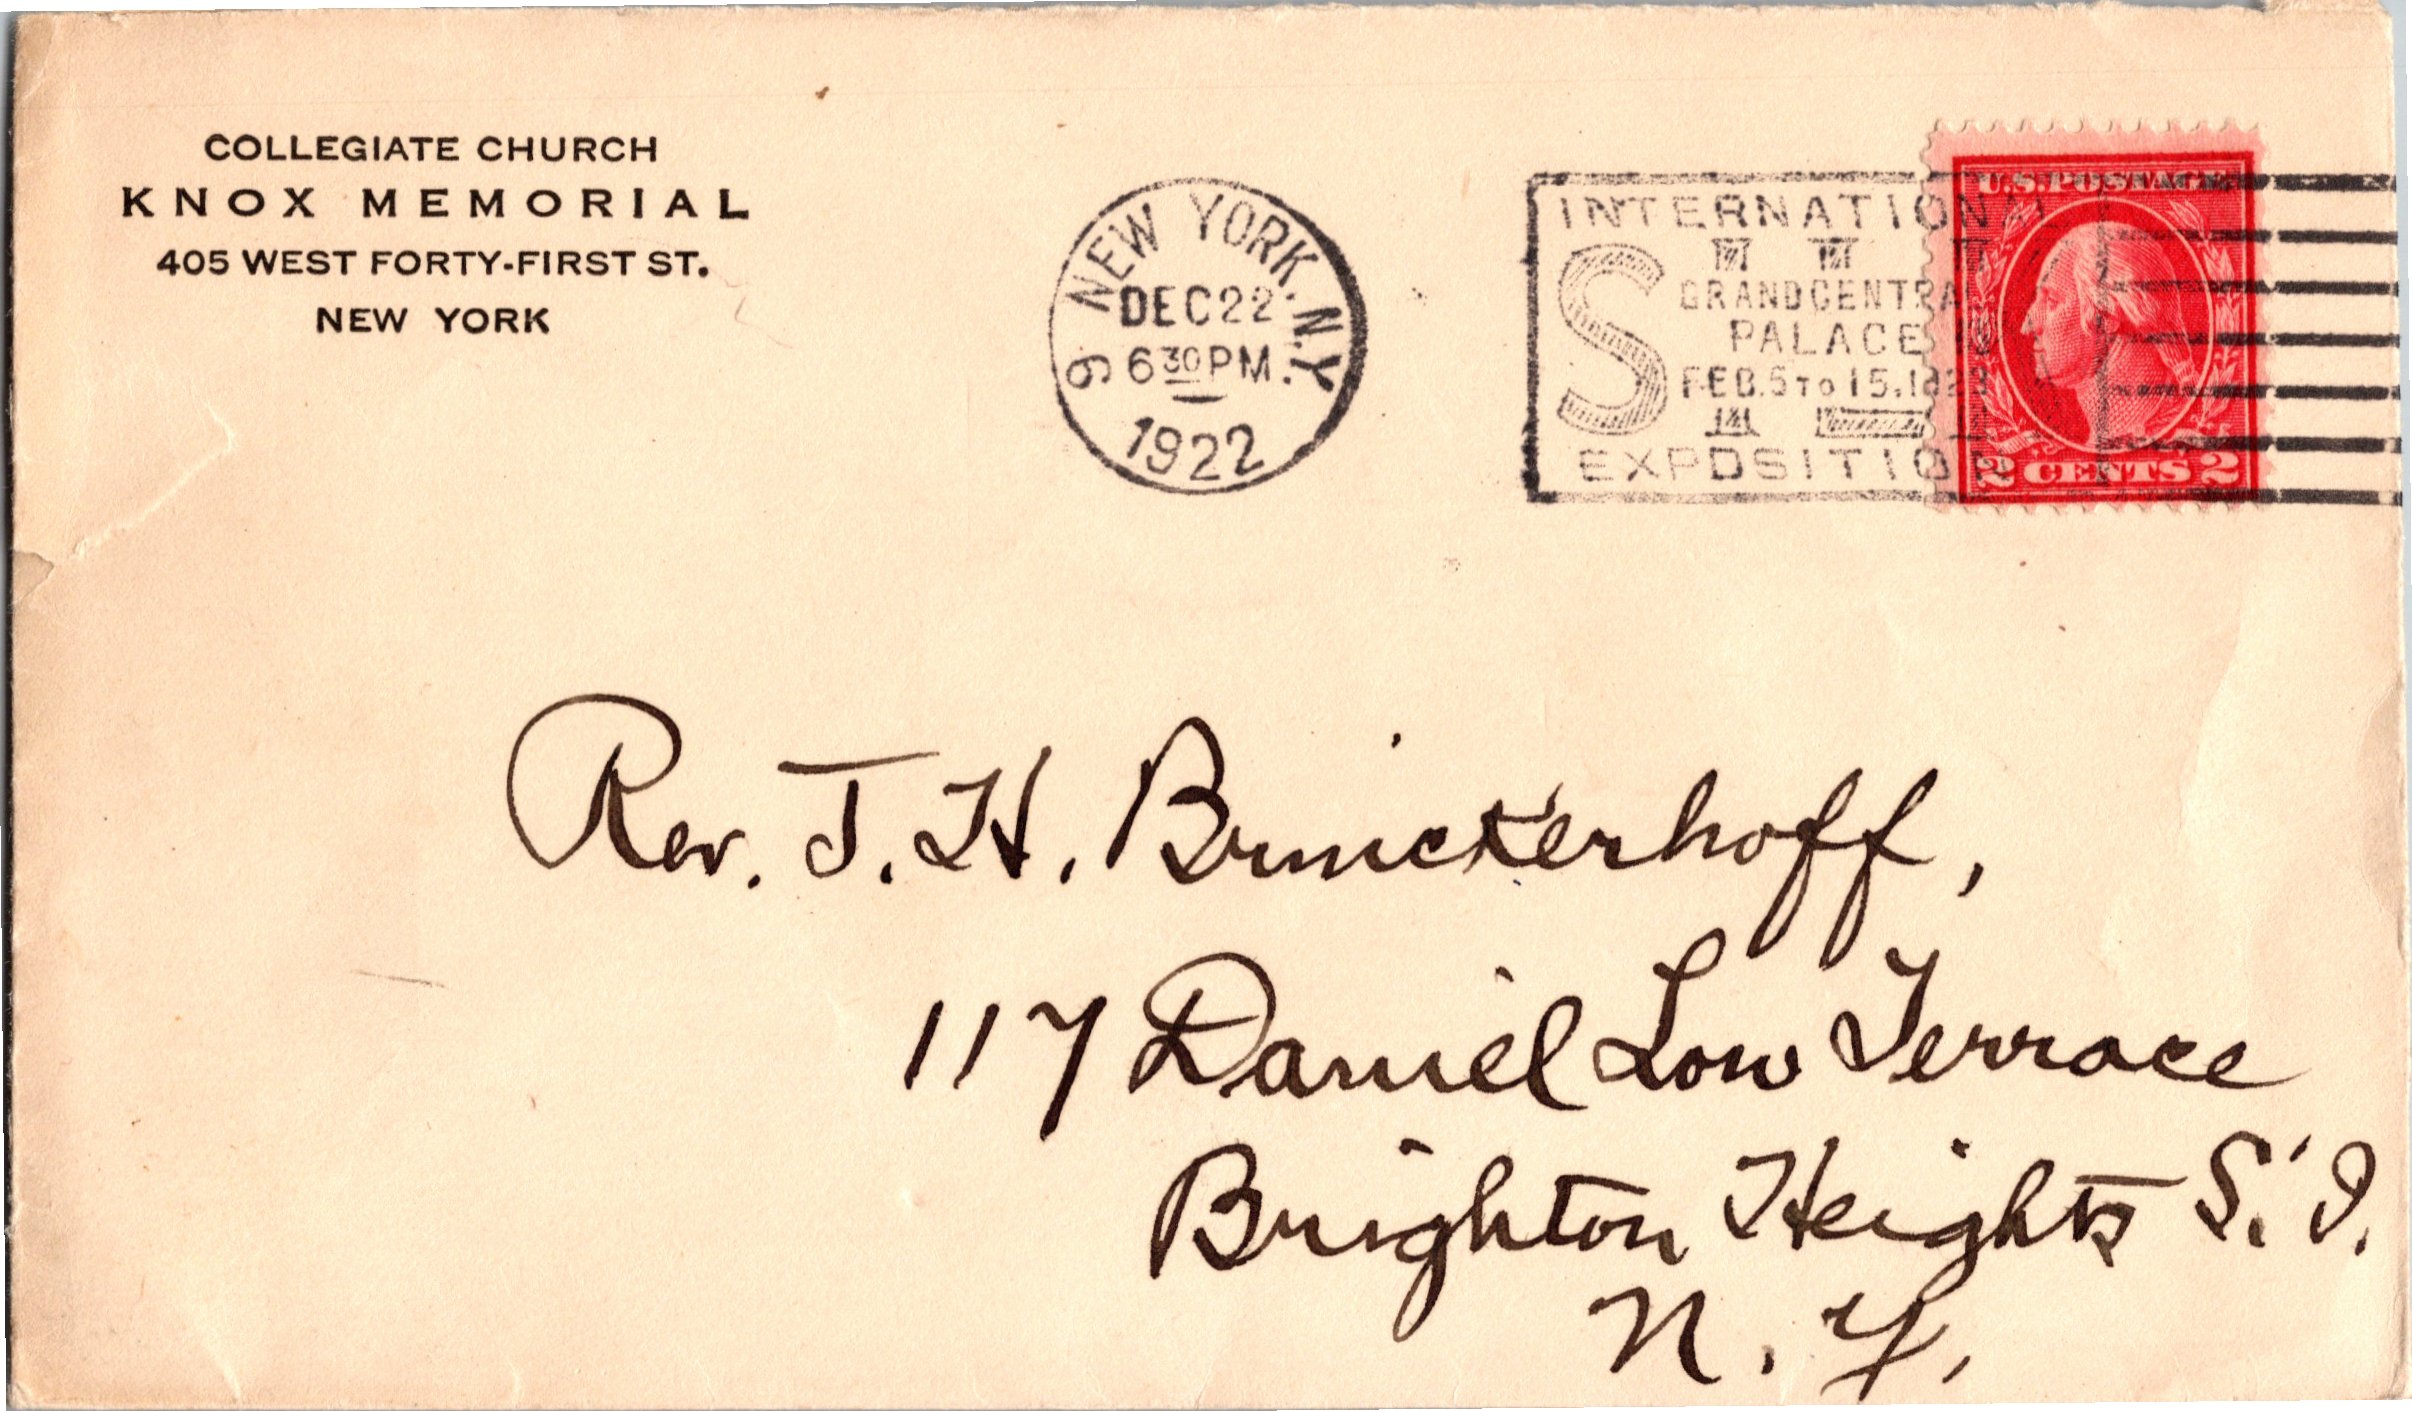 COLLEGIATE CHURCH
KNOX MEMORIAL
405 WEST FORTY-FIRST ST.
NEW YORK
NEW YORK, N.Y. 9
DEC 22
6 30 PM
1922
INTERNATIONAL
SILK
GRAND CENTRAL
PALACE
FEB. 5 TO 15, 1923
EXPOSITION
U.S. POSTAGE
2 CENTS 2
Rev. J. H. Brinckerhoff,
117 Daniel Low Terrace
Brighton Heights S. I.
N. Y.